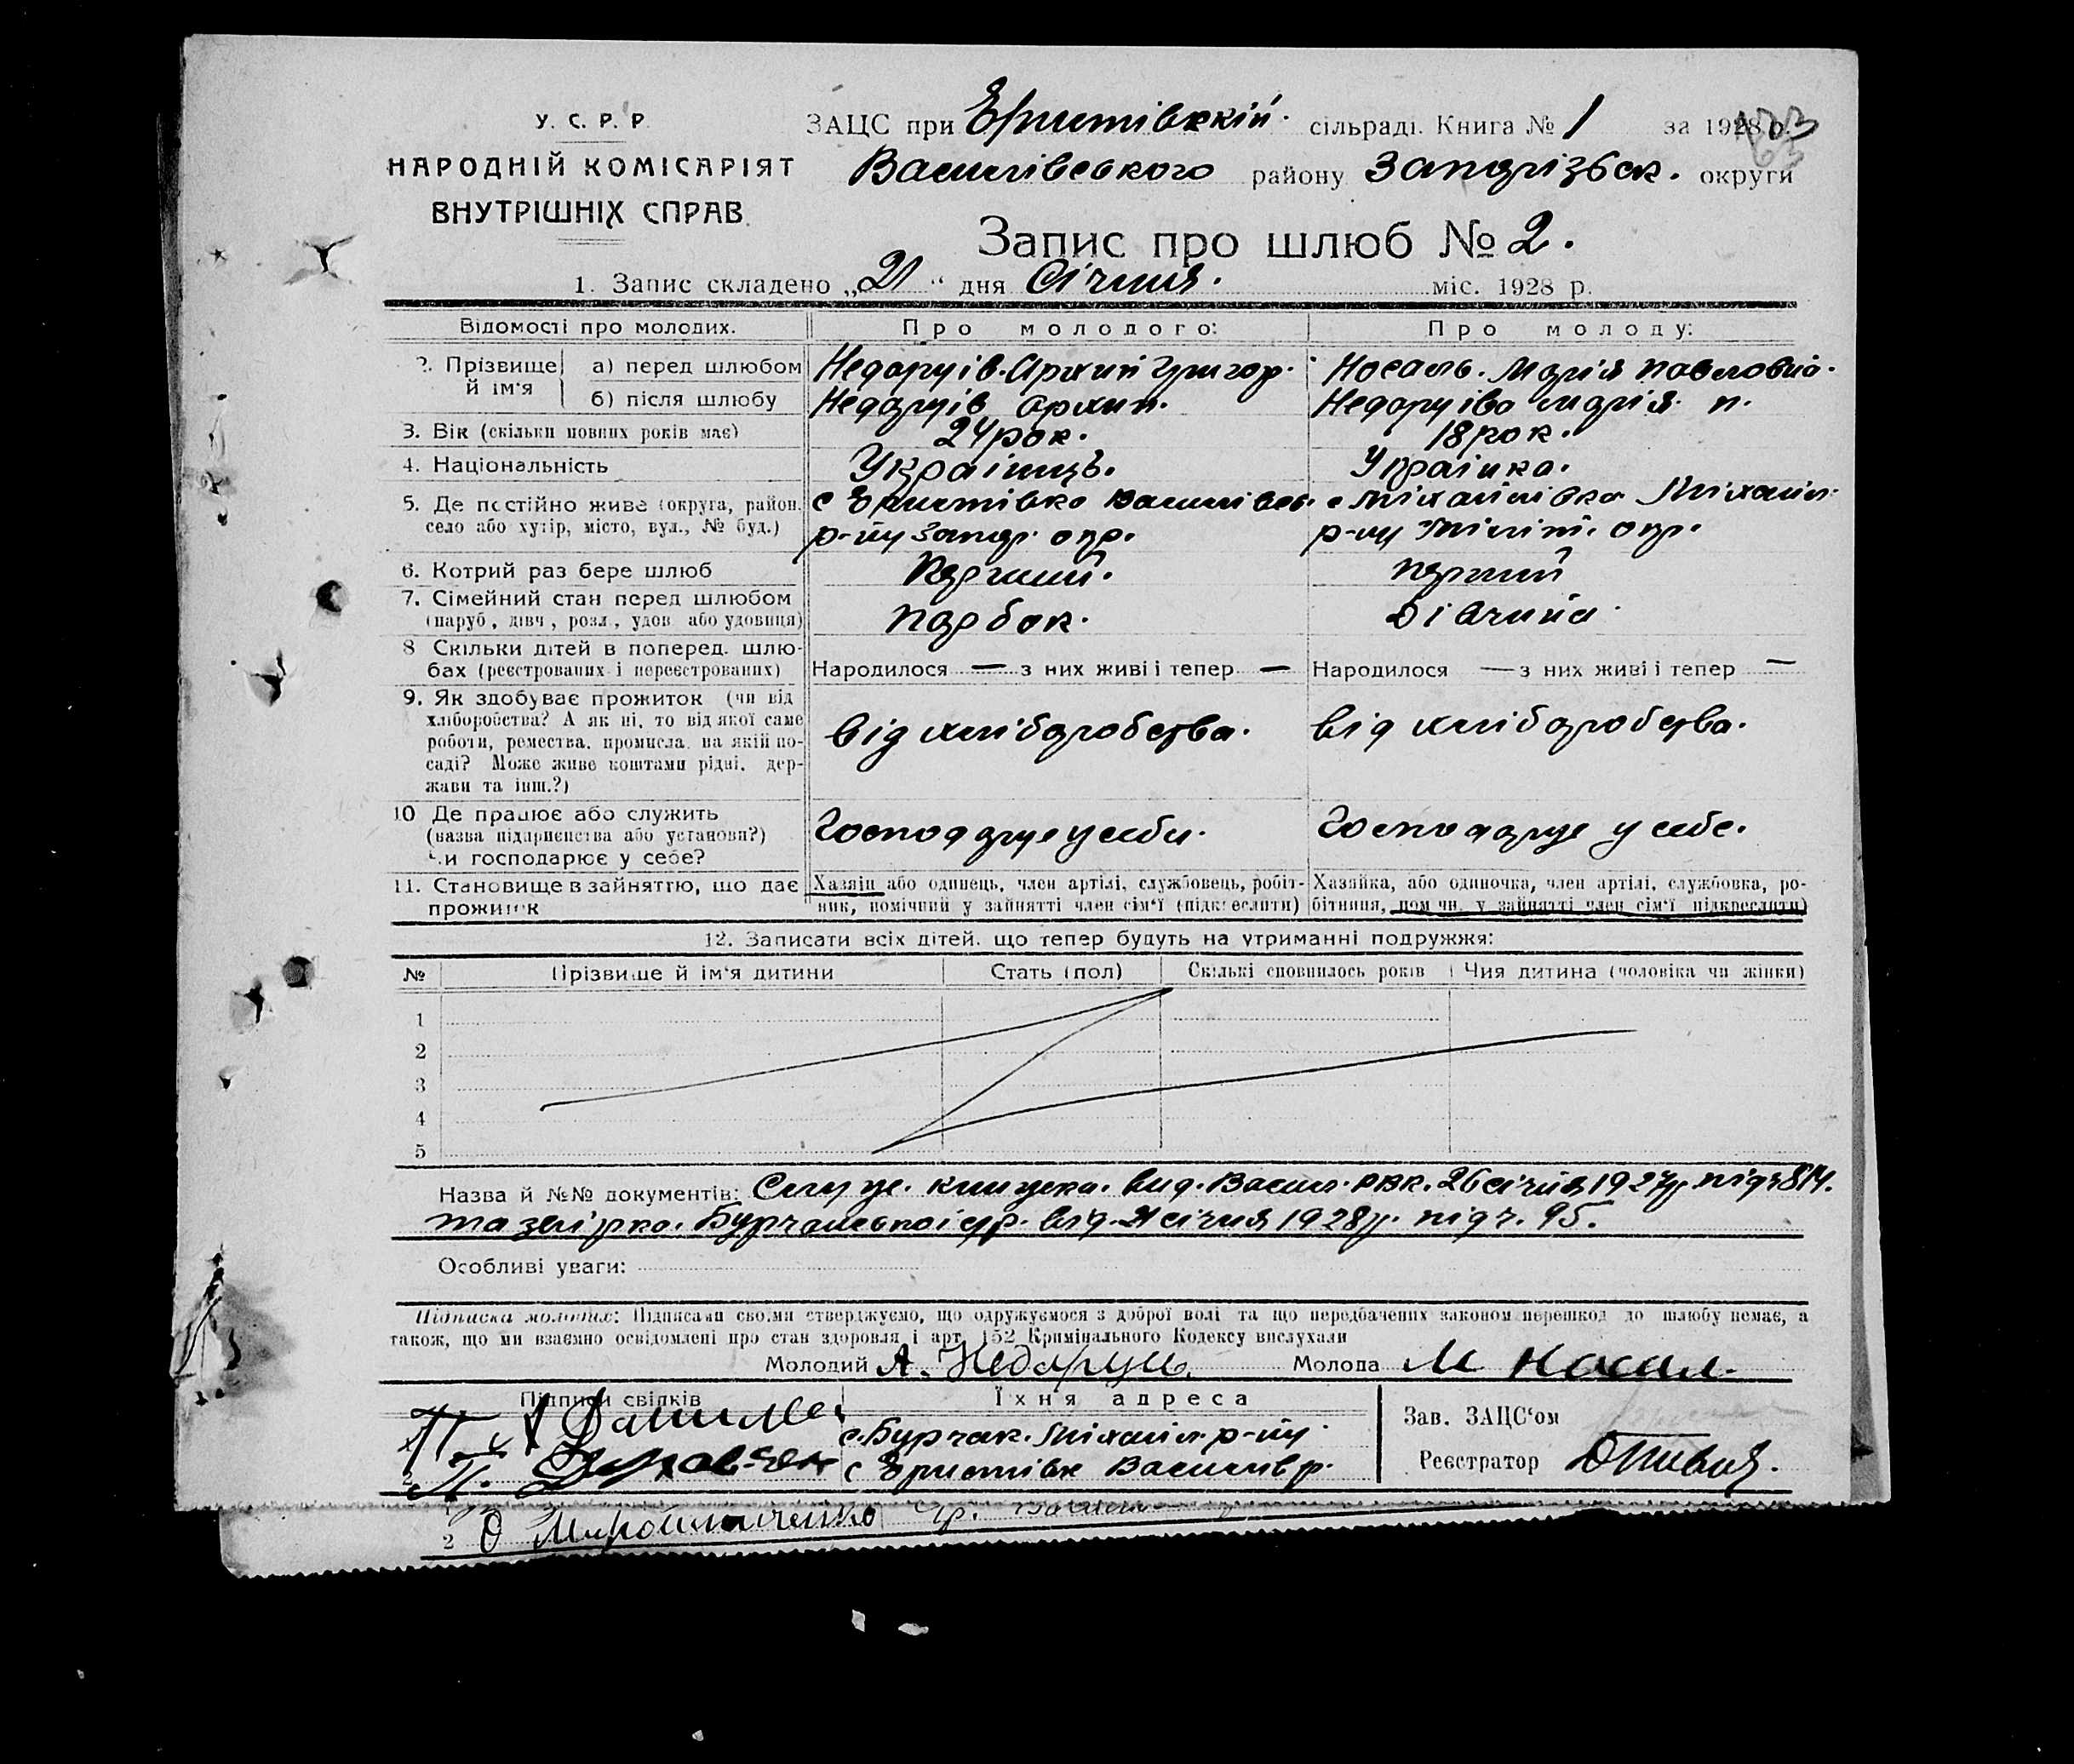 У. С. Р. Р.
НАРОДНІЙ КОМІСАРІЯТ
ВНУТРІШНІХ СПРАВ.
ЗАЦС при Еристівскій сільраді. Книга № 1 за 1928 р.
Василівського району Запорізьк. округи
Запис про шлюб № 2.
1. Запис складено „21“ дня Січня. міс. 1928 р.
Відомості про молодих. Про молодого: Про молоду:
2. Прізвище й ім‘я а) перед шлюбом Недоруїв. Архип Григор. Носаль. Марія Павловна.
б) після шлюбу Недоруїв Архип. Недоруїва Марія. п.
3. Вік (скільки повних років має) 24 рок. 18 рок.
4. Національність Українць. Українка.
5. Де постійно живе (округа, район, село або хутір, місто, вул., № буд.) с Еристівка Василівс. с Міхайлівка Міхайл.
р-ну Запор. окр. р-ну Меліт. окр.
6. Котрий раз бере шлюб Перший. перший
7. Сімейний стан перед шлюбом (паруб., дівч., розл., удов. або удовиця) парбок. дівчина.
8 Скільки дітей в поперед. шлюбах (реєстрованих і нереєстрованих) Народилося — з них живі і тепер — Народилося — з них живі і тепер —
9. Як здобуває прожиток (чи від
хліборобства? А як ні, то від якої саме
роботи, ремества, промисла, на якій по-
саді? Може живе коштами рідні, дер-
жави та інш.?)
від хліборобства. від хліборобства.
10 Де працює або служить
(назва підприємства або установи?)
Чи господарює у себе?
Господарує у себи. Господарує у себе.
11. Становище в зайняттю, що дає прожиток
Хазяїн або одинець, член артілі, службовець, робіт-
ник, помічний у зайнятті член сім‘ї (підкреслити)
Хазяйка, або одиночка, член артілі, службовка, ро-
бітниця, помічн. у зайнятті член сім‘ї підкреслити)
12. Записати всіх дітей, що тепер будуть на утриманні подружжя:
№ Прізвище й ім‘я дитини Стать (пол) Скількі сповнилось років Чия дитина (чоловіка чи жінки)
1
2
3
4
5
Назва й №№ документів: Служ. книжка. вид. Васил. РВК. 26 січня 1927р. під ч 814.
та звірка. Бурчанської с/р. від. 21 січня 1928р. під ч. 95.
Особливі уваги:
Підписка молодих: Підписами своїми стверджуємо, що одружуємося з доброї волі та що передбачених законом перешкод до шлюбу немає, а
також, що ми взаємно освідомлені про стан здоровля і арт. 152 Кримінального Кодексу вислухали
Молодий А. Недоруїв Молода М Носал.
Підписи свідків Їхня адреса
с. Бурчак. Міхайл. р-ну.
2 с Еристівк Василів р.
Зав. ЗАЦС‘ом
Реєстратор
2 О Мирошниченко